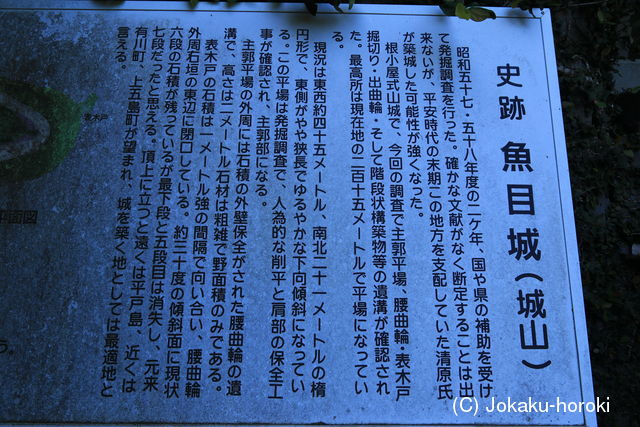 史跡 魚目城（城山）
昭和五十七・五十八年度の二ケ年、国や県の補助を受け
て発掘調査を行った。確かな文献がなく断定することは出
来ないが、平安時代の末期この地方を支配していた清原氏
が築城した可能性が強くなった。
根小屋式山城で、今回の調査で主郭平場、腰曲輪・表木戸
掘切り・出曲輪・そして階段状構築物等の遺溝が確認され
た。最高所は現在地の二百十五メートルで平場になってい
る。
現況は東西約四十五メートル、南北二十一メートルの楕
円形で、東側がやや狭長でゆるやかな下向傾斜になってい
る。この平場は発掘調査で、人為的な削平と肩部の保全工
事が確認され、主郭部になる。
主郭平場の外周には石積の外壁保全がされた腰曲輪の遺
溝で、高さは二メートル石材は粗雑で野面積のみである。
表木戸の石積は一メートル強の間隔で向い合い、腰曲輪
外周石垣の東辺に開口している。約三十度の傾斜面に現状
六段の石積が残っているが最下段と五段目は消失し、元来
七段だったと思える。頂上に立つと遠くは平戸島、近くは
有川町、上五島町が望まれ、城を築く地としては最適地と
言える。
表木戸
平面図
う。
(C) Jokaku-horoki